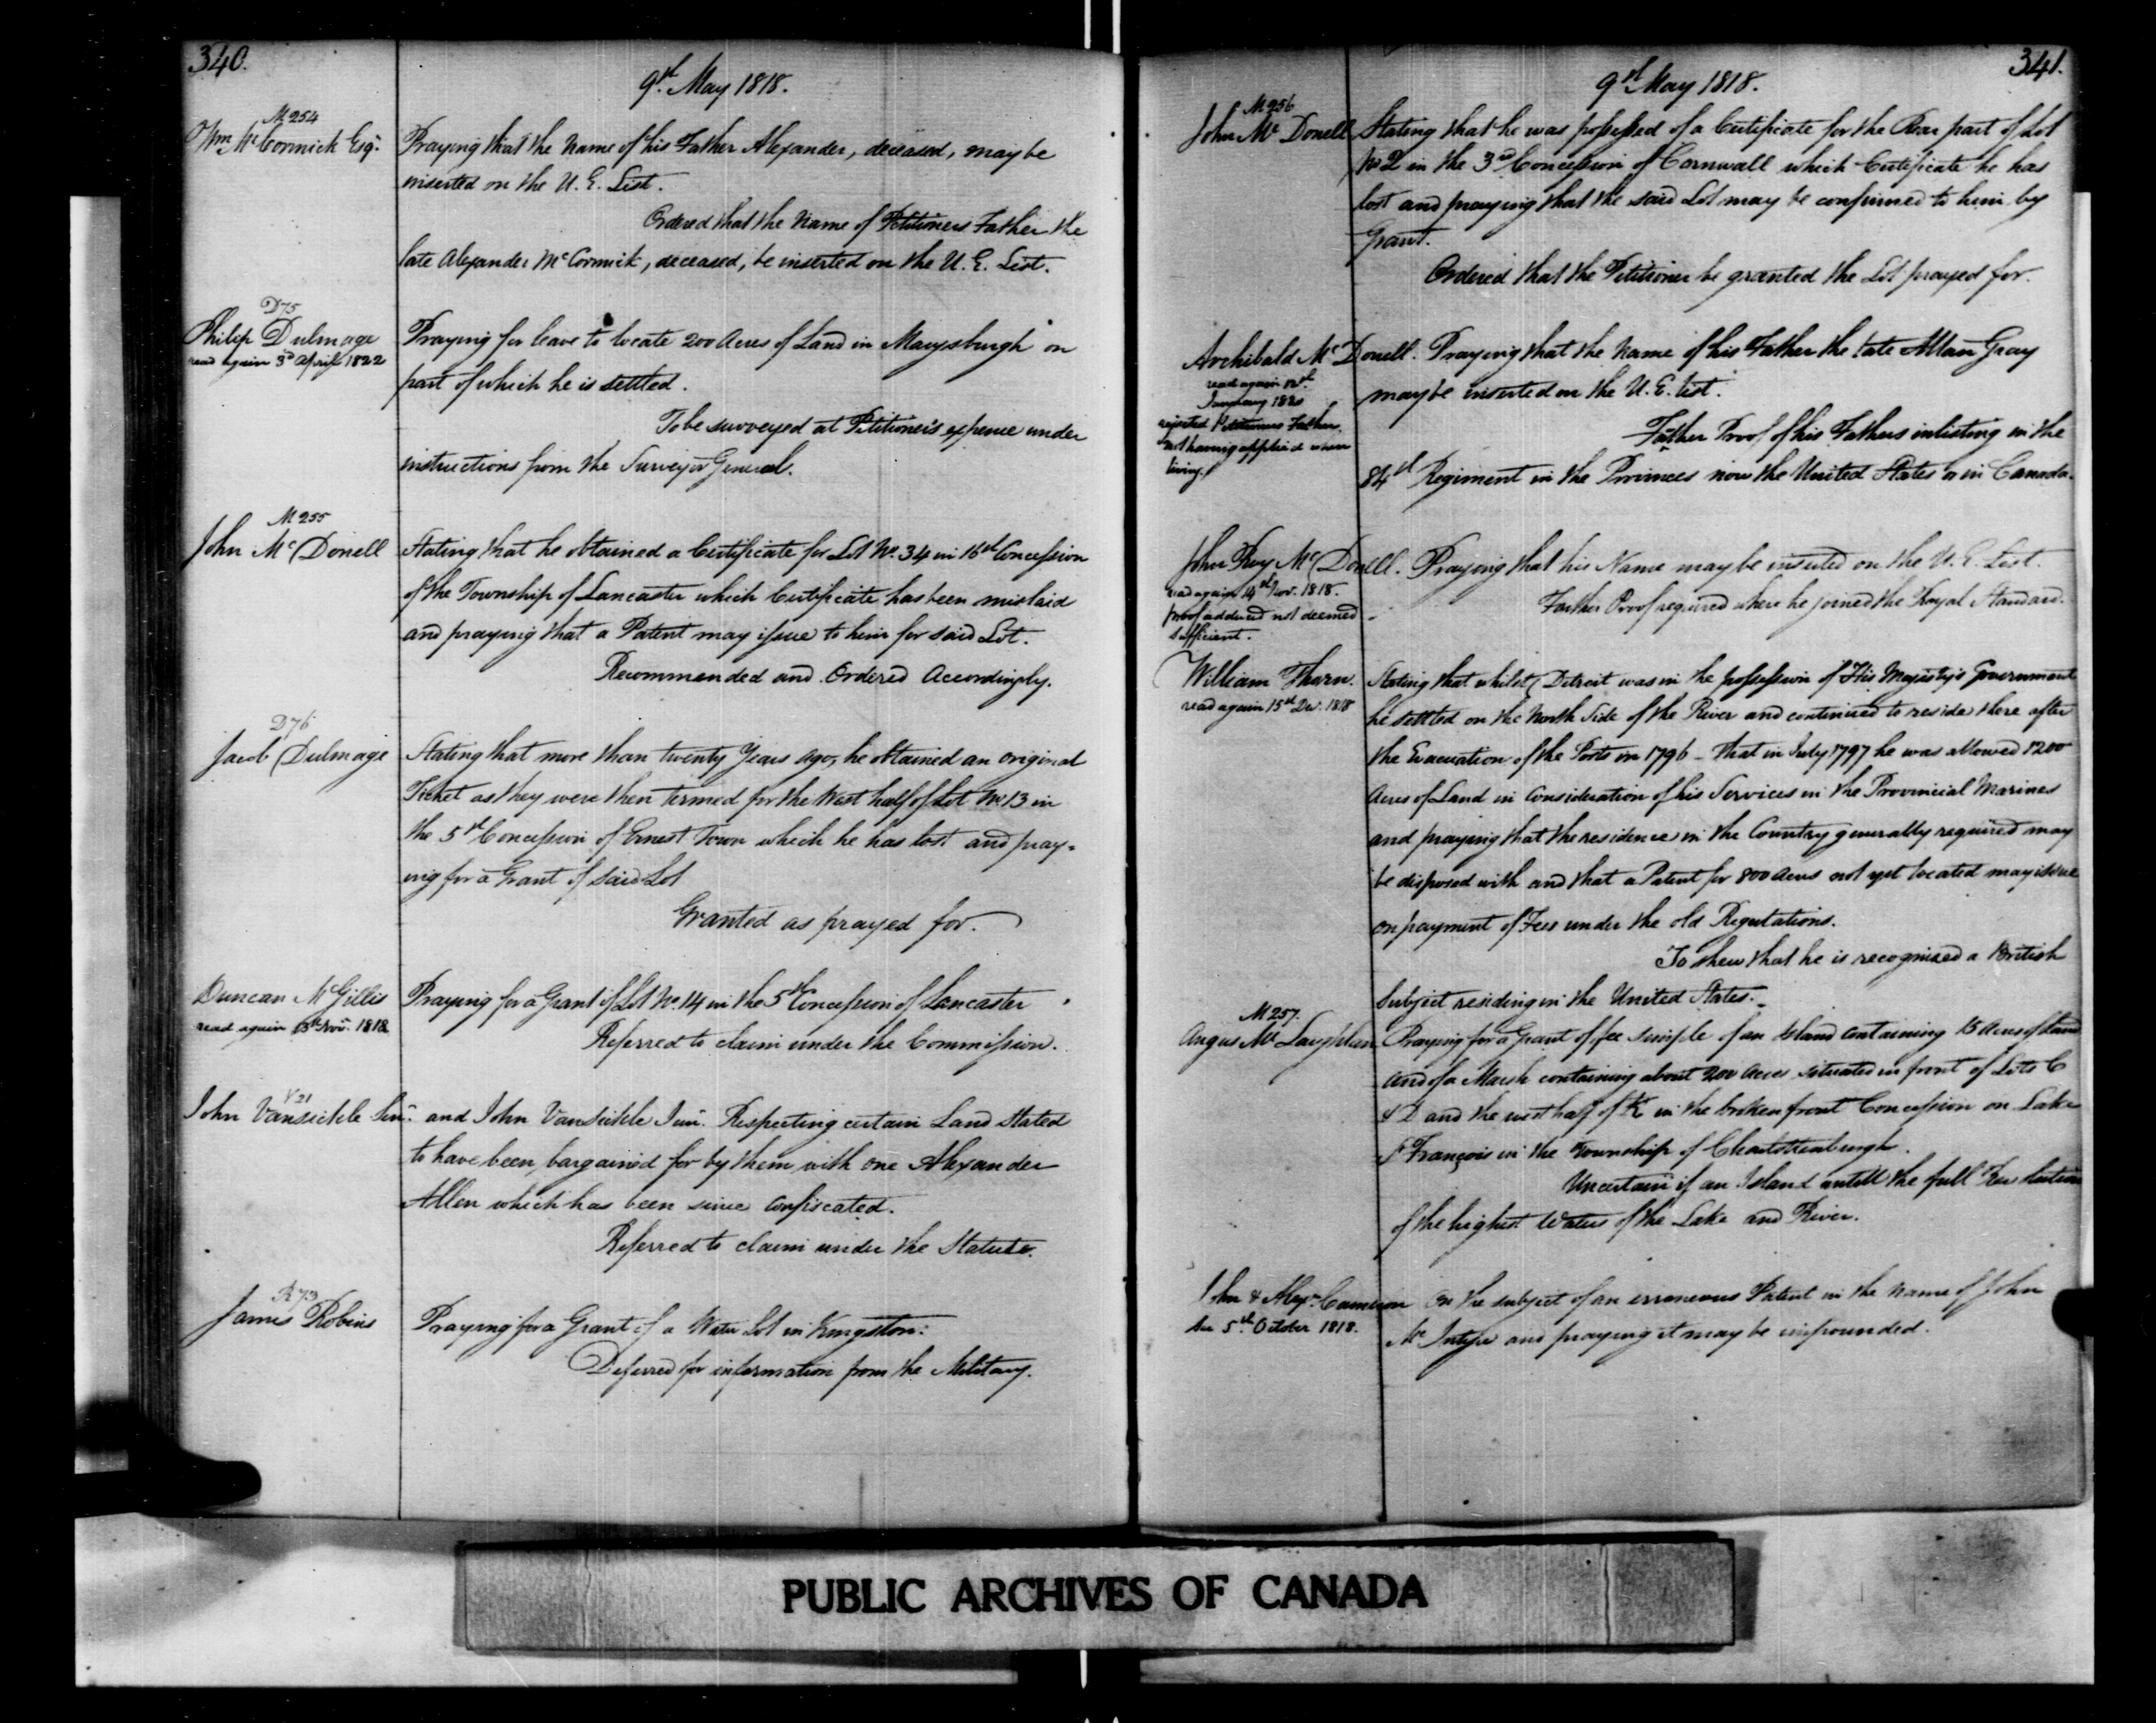 340.
9th May 1818.
M 254
Wm McCormick Esqr.
Praying that the Name of his Father Alexander, deceased, may be
inserted on the U. E. List.
Ordered that the Name of Petitioners Father the
late Alexander McCormick, deceased, be inserted on the U. E. List.
D75
Philip Dulmage
read again 3d April 1822
Praying for leave to locate 200 Acres of Land in Marysburgh on
part of which he is settled.
To be surveyed at Petitioner's expence under
instructions from the Surveyor General.
M 255
John McDonell
Stating that he obtained a Certificate for Lot No. 34 in 16th Concession
of the Township of Lancaster which Certificate has been mislaid
and praying that a Patent may issue to him for said Lot.
Recommended and Ordered Accordingly.
D76
Jacob Dulmage
Stating that more than twenty Years ago, he obtained an original
Ticket as they were then termed for the West half of Lot No 13 in
the 5th Concession of Ernest Town which he has lost and pray-
ing for a Grant of said Lot
Granted as prayed for.
Duncan McGillis
read again 13th Novr. 1818
Praying for a Grant of Lot No. 14 in the 5th Concession of Lancaster
Referred to claim under the Commission.
V 21
John Vansickle Senr. and John Vansickle Junr. Respecting certain Land stated
to have been bargained for by them with one Alexander
Allen which has been since confiscated.
Referred to claim under the Statute.
R 73
James Robins
Praying for a Grant of a Water Lot in Kingston:
Deferred for information from the Military.
341.
9th May 1818.
M 256
John McDonell
Stating that he was possessed of a Certificate for the Rear part of Lot
No 2 in the 3rd Concession of Cornwall which Certificate he has
lost and praying that the said Lot may be confirmed to him by
Grant.
Ordered that the Petitioner be granted the Lot prayed for.
Archibald McDonell. Praying that the Name of his Father the late Allan Gray
may be inserted on the U. E. List.
read again 12th
January 1820
rejected Petitioners Father
not having applied when
living.
Farther Proof of his Fathers inlisting in the
84th Regiment in the Provinces now the United States or in Canada.
John Roy McDonell. Praying that his Name may be inserted on the U. E. List.
read again 4th Nov. 1818.
proof adduced not deemed
sufficient.
Farther Proof required where he joined the Royal Standard.
William Thorn.
read again 15th Dec. 1818
Stating that whilst Detroit was in the possession of His Majesty's Government
he settled on the North Side of the River and continued to reside there after
the Evacuation of the Posts in 1796 – that in July 1797 he was allowed 1200
Acres of Land in consideration of his Services in the Provincial Marines
and praying that the residence in the Country generally required may
be dispensed with and that a Patent for 800 acres not yet located may issue
on payment of Fees under the old Regulations.
To shew that he is recognized a British
Subject residing in the United States.
M 257.
Angus McLaughlan
Praying for a Grant of fee simple of an Island containing 15 Acres of Land
and of a Marsh containing about 200 Acres situated in front of Lots C
& D and the west half of K in the broken front Concession on Lake
St François in the Township of Charlottenburgh.
Uncertain if an Island untill the full
of the highest Waters of the Lake and River.
John & Alexr. Cameron
See 5th October 1818.
On the subject of an erroneous Patent in the Name of John
McIntyre and praying it may be impounded.
PUBLIC ARCHIVES OF CANADA